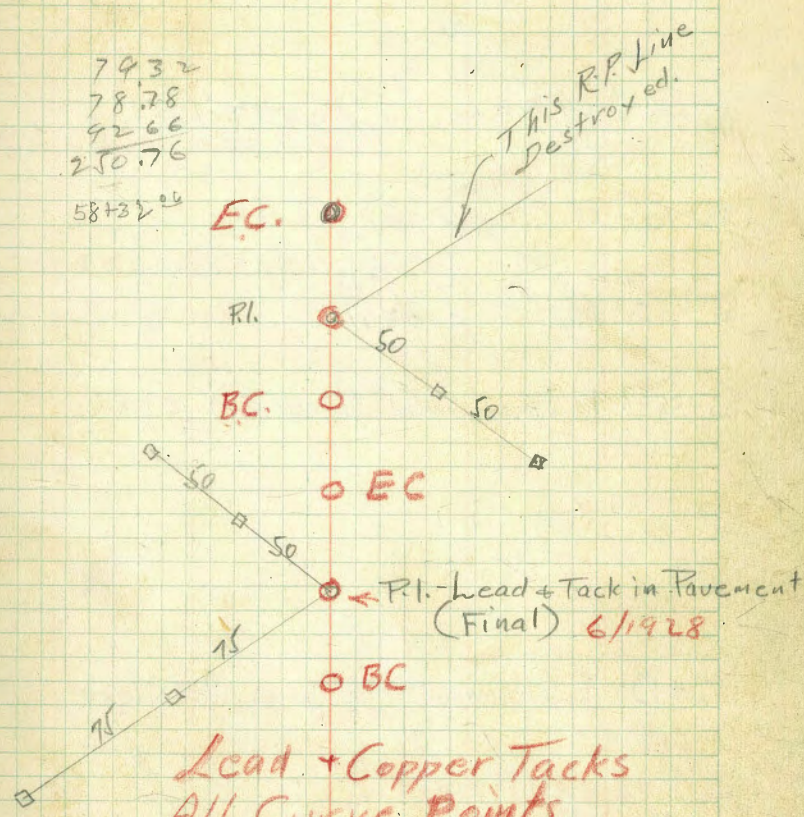 79.32
78.78
92 66
250.76
58+32 00
This R.P. Line
Destroyed.
E.C.
P.I.
50
B.C.
50
E C
50
50
P.I.-Lead & Tack in Pavement
(Final) 6/1928
75
BC
75
Lead + Copper Tacks
All Curve Points